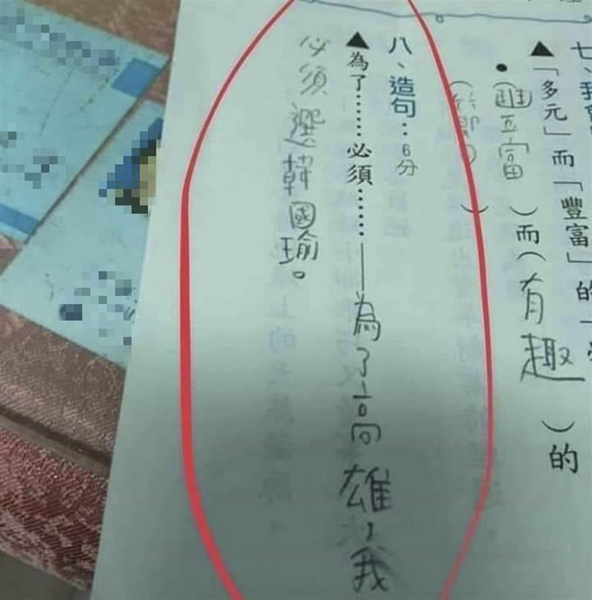 七、我
▲「多元」而「豐富」的「
●(豐富)而(有趣)的
(節目)
八、造句：6分
▲為了……必須……—為了高雄，我
必須選韓國瑜。